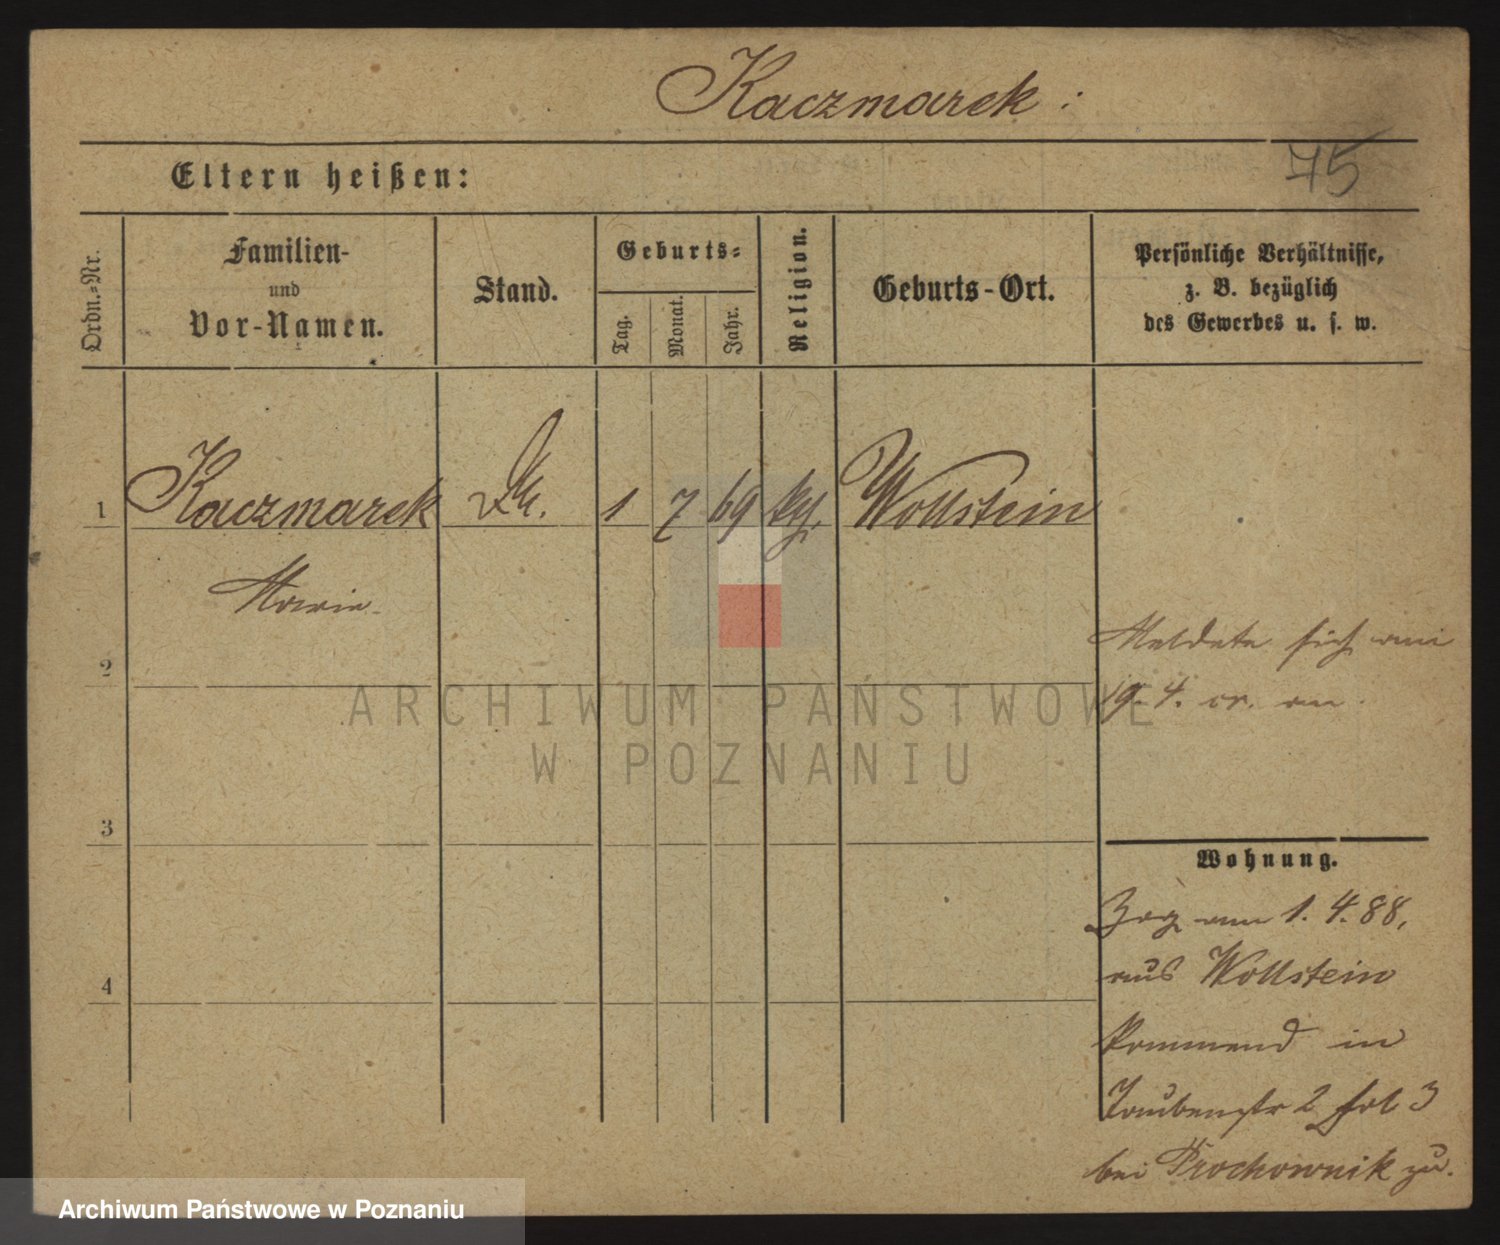 Kaczmarek :
75
Eltern heißen:
Ordn.-Nr.
Familien-
und
Vor-Namen.
Stand.
Geburts-
Tag.
Monat.
Jahr.
Religion.
Geburts-Ort.
Persönliche Verhältnisse,
z. B. bezüglich
des Gewerbes u. s. w.
1 Kaczmarek 1 7 69 kth. Wollstein
Marie
Meldete sich am
19. 4. cr. an.
2
ARCHIWUM PAŃSTWOWE
W POZNANIU
3
Wohnung.
Zog am 1. 4. 88,
aus Wollstein
4
kommend in
Taubenstr 2 3
bei Prochownik zu.
Archiwum Państwowe w Poznaniu